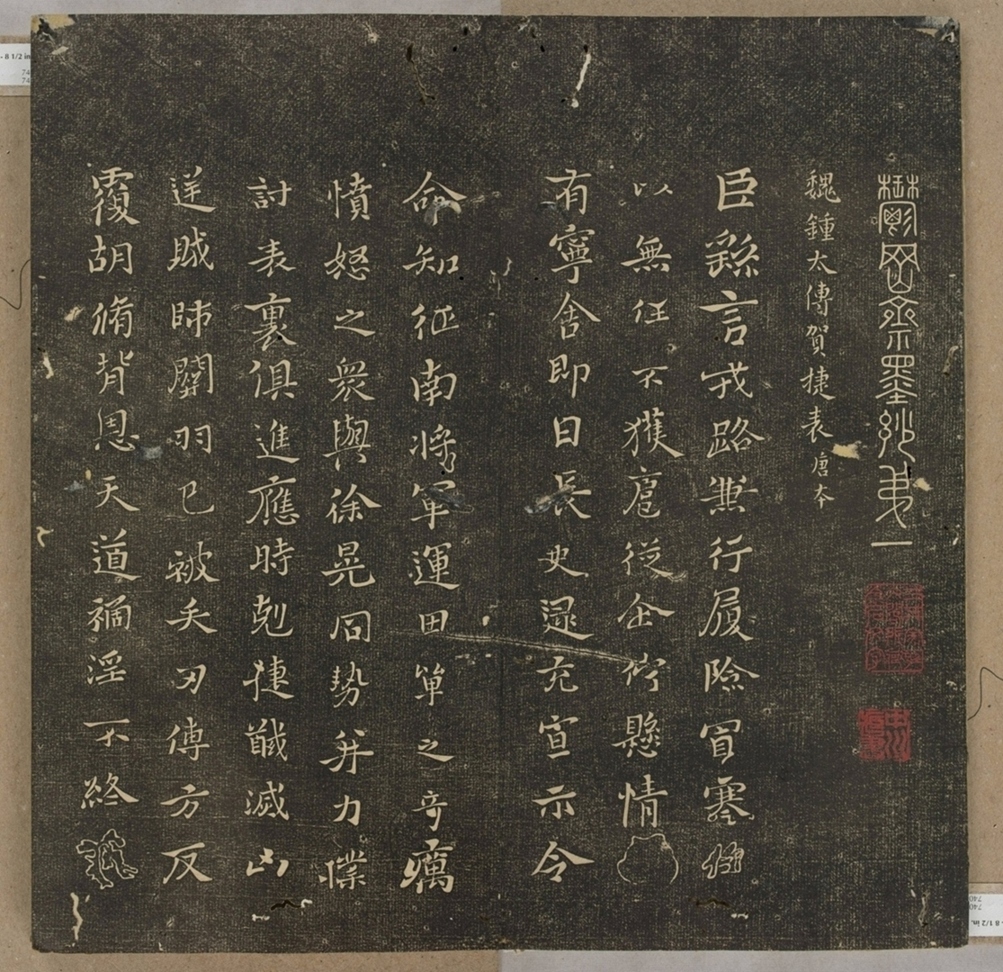 鬱岡齋墨妙第一
魏鍾太傅賀捷表 唐本
臣繇言戎路兼行履險冒寒
以無任不獲扈從企佇懸情
有寧舍即日長史逯充宣示令
命知征南將軍運田單之奇厲
憤怒之衆與徐晃同勢并力撲
討表裏俱進應時剋捷馘滅凶
逆賊帥關羽已被矢刃傅方反
覆胡脩背恩天道禍淫不終
8 1/2 in